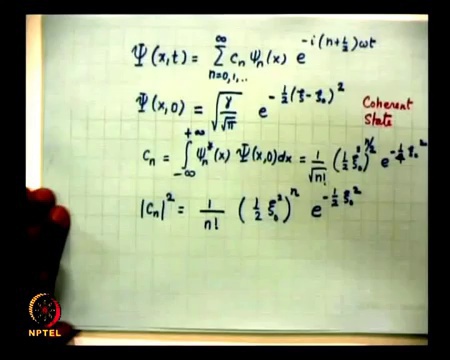 Ψ(x,t) = ∑_{n=0,1,..}^{∞} c_n ψ_n(x) e^{-i(n+½)ωt}
Ψ(x,0) = √(γ/√π) e^{-½(ξ-ξ₀)²} Coherent State
c_n = ∫_{-∞}^{+∞} ψ_n*(x) Ψ(x,0)dx = 1/√n! (½ξ₀²)^{n/2} e^{-¼ξ₀²}
|c_n|² = 1/n! (½ξ₀²)^n e^{-½ξ₀²}
NPTEL